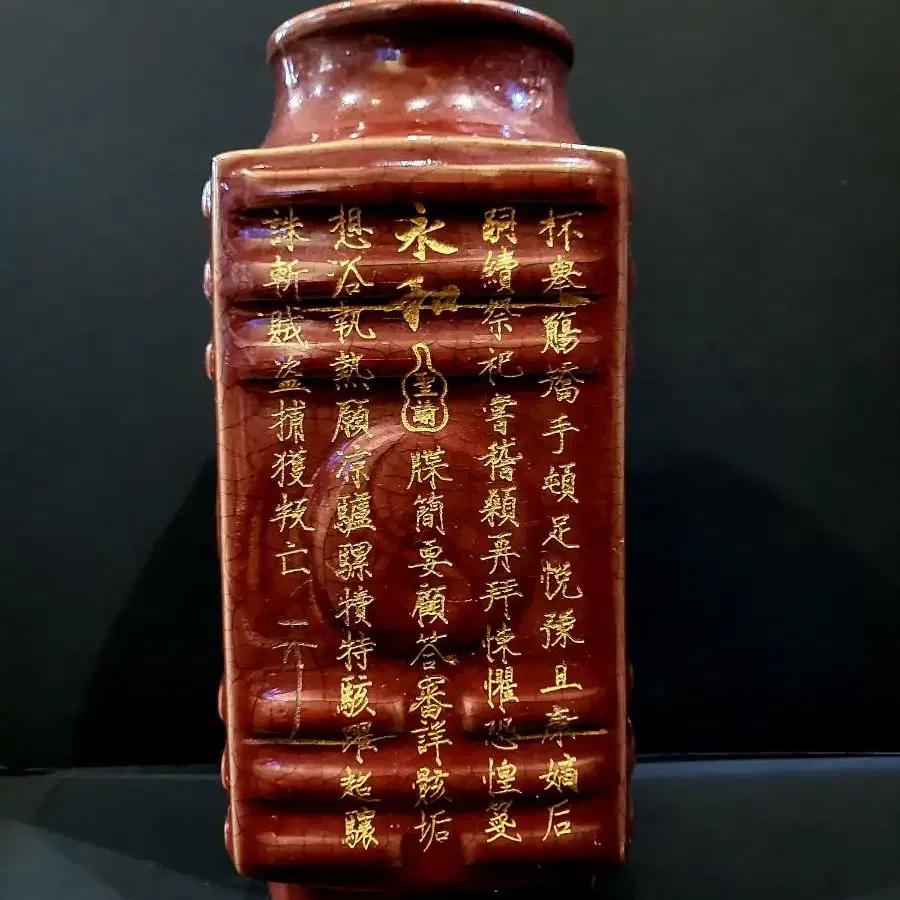 杯舉觴矯手頓足悅豫且康嫡后
嗣續祭祀嘗稽顙再拜悚懼恐惶箋
永和
牒簡要顧答審詳骸垢
想浴執熱願凉驢騾犢特駭躍超驤
誅斬賊盜捕獲叛亡